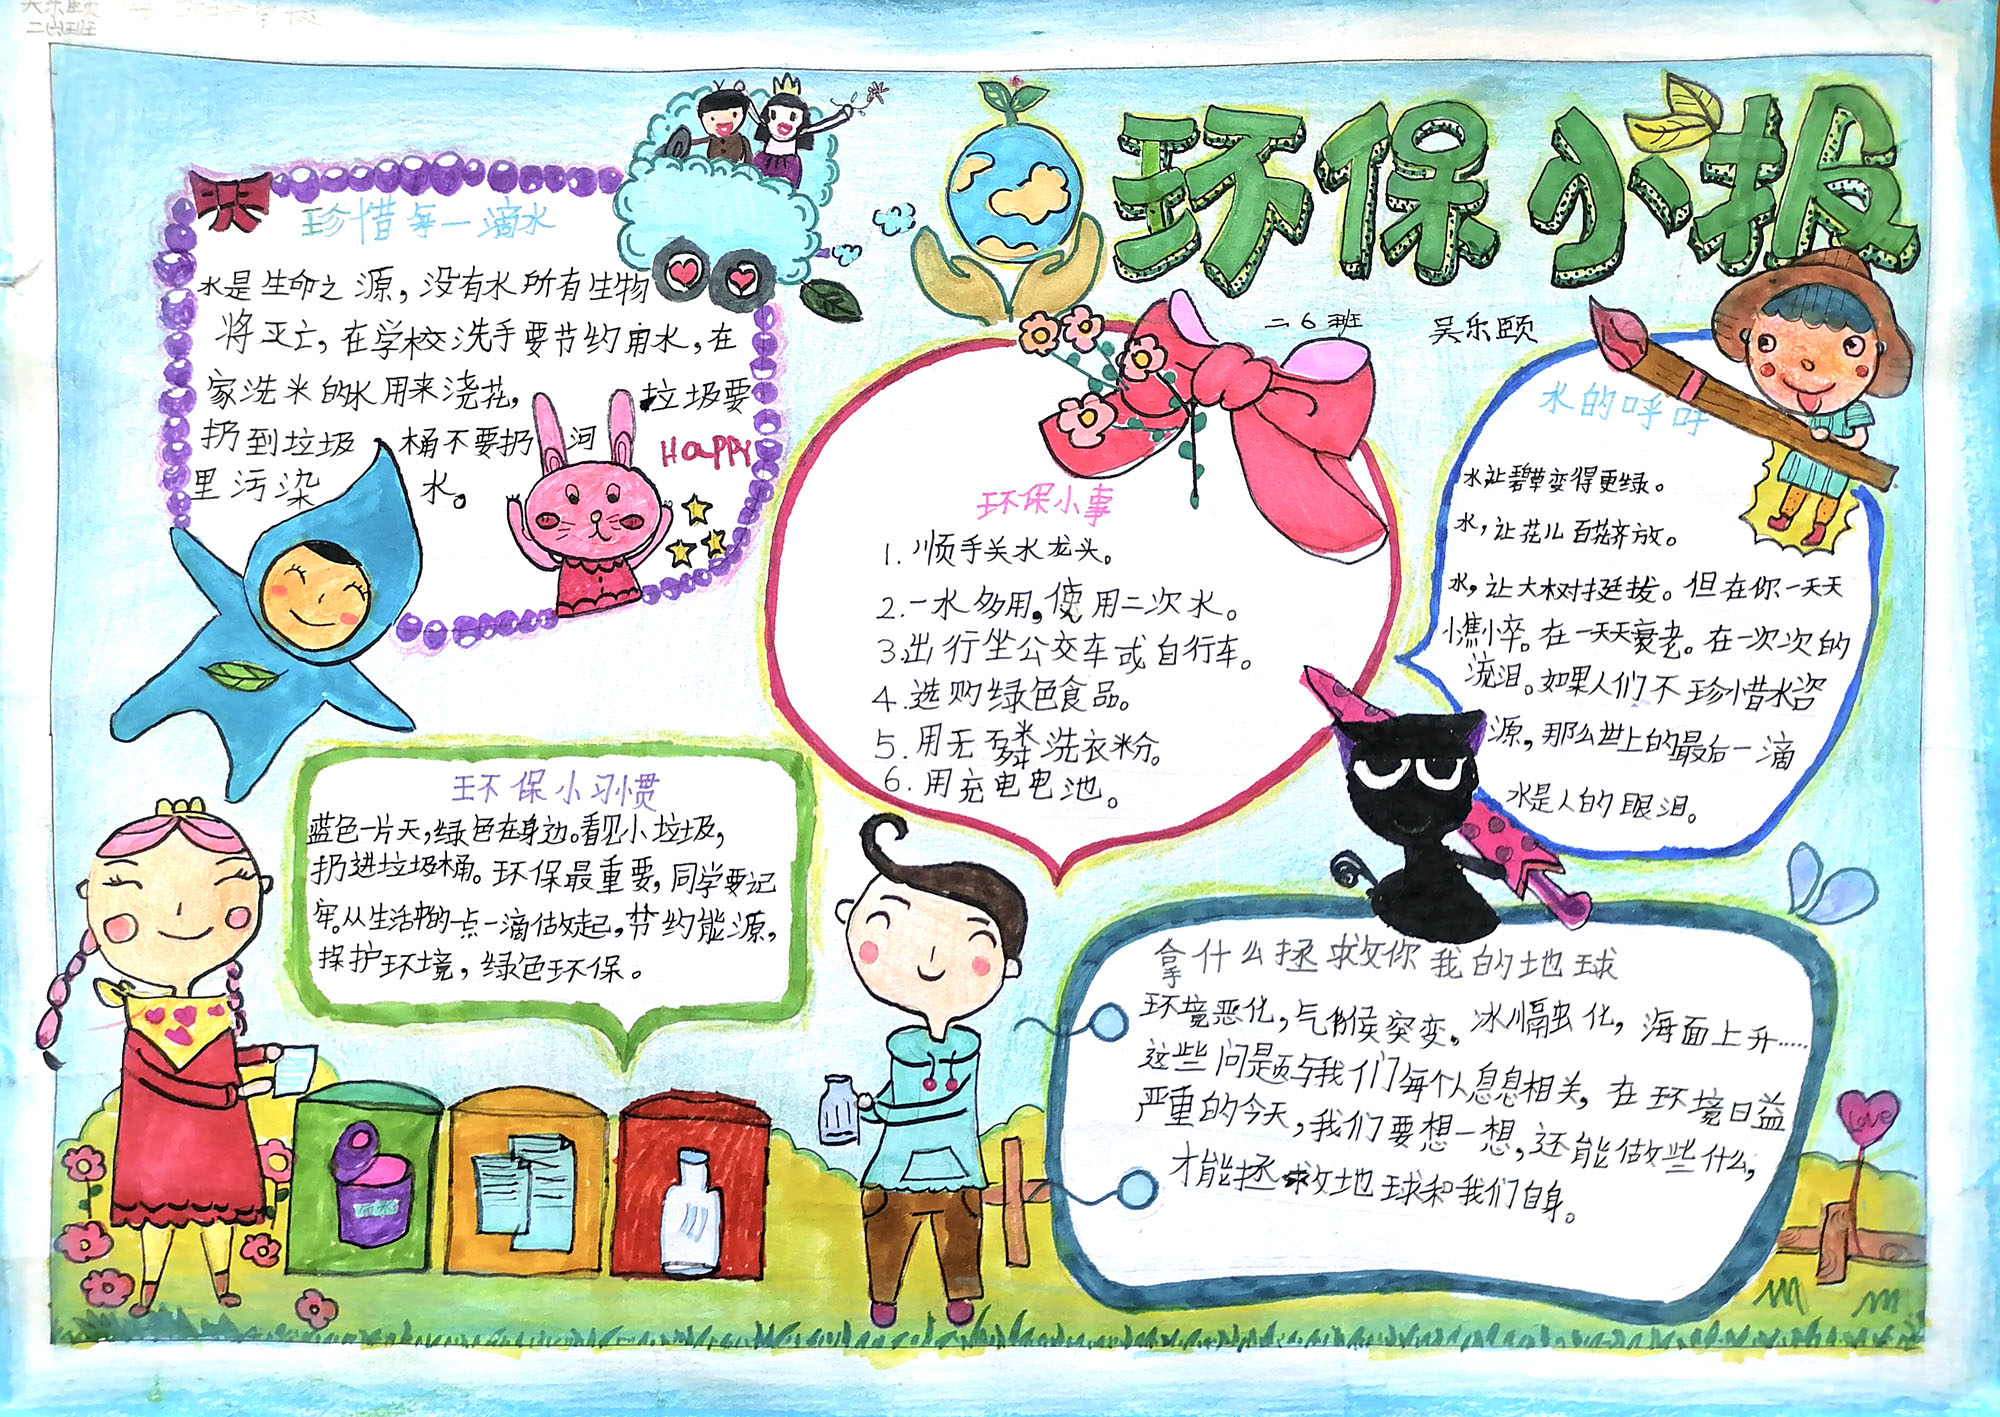 吴乐颐
二(6)班
环保小报
二6班 吴乐颐
珍惜每一滴水
水是生命之源，没有水所有生物
将灭亡，在学校洗手要节约用水，在
家洗米的水用来浇花，垃圾要
扔到垃圾桶不要扔河
里污染水。
Happy
环保小事
1.顺手关水龙头。
2.一水多用，使用二次水。
3.出行坐公交车或自行车。
4.选购绿色食品。
5.用无磷洗衣粉。
6.用充电电池。
水的呼吁
水，让碧草变得更绿。
水，让花儿百花齐放。
水，让大树挺拔。但在你一天天
憔悴。在一天天衰老。在一次次的
流泪。如果人们不珍惜水资
源，那么世上的最后一滴
水是人的眼泪。
环保小习惯
蓝色一片天，绿色在身边。看见小垃圾，
扔进垃圾桶。环保最重要，同学要记
牢。从生活中的一点一滴做起，节约能源，
保护环境，绿色环保。
拿什么拯救你我的地球
环境恶化，气候突变。冰川融化，海面上升……
这些问题与我们每个人息息相关，在环境日益
严重的今天，我们要想一想，还能做些什么，
才能拯救地球和我们自身。
Love